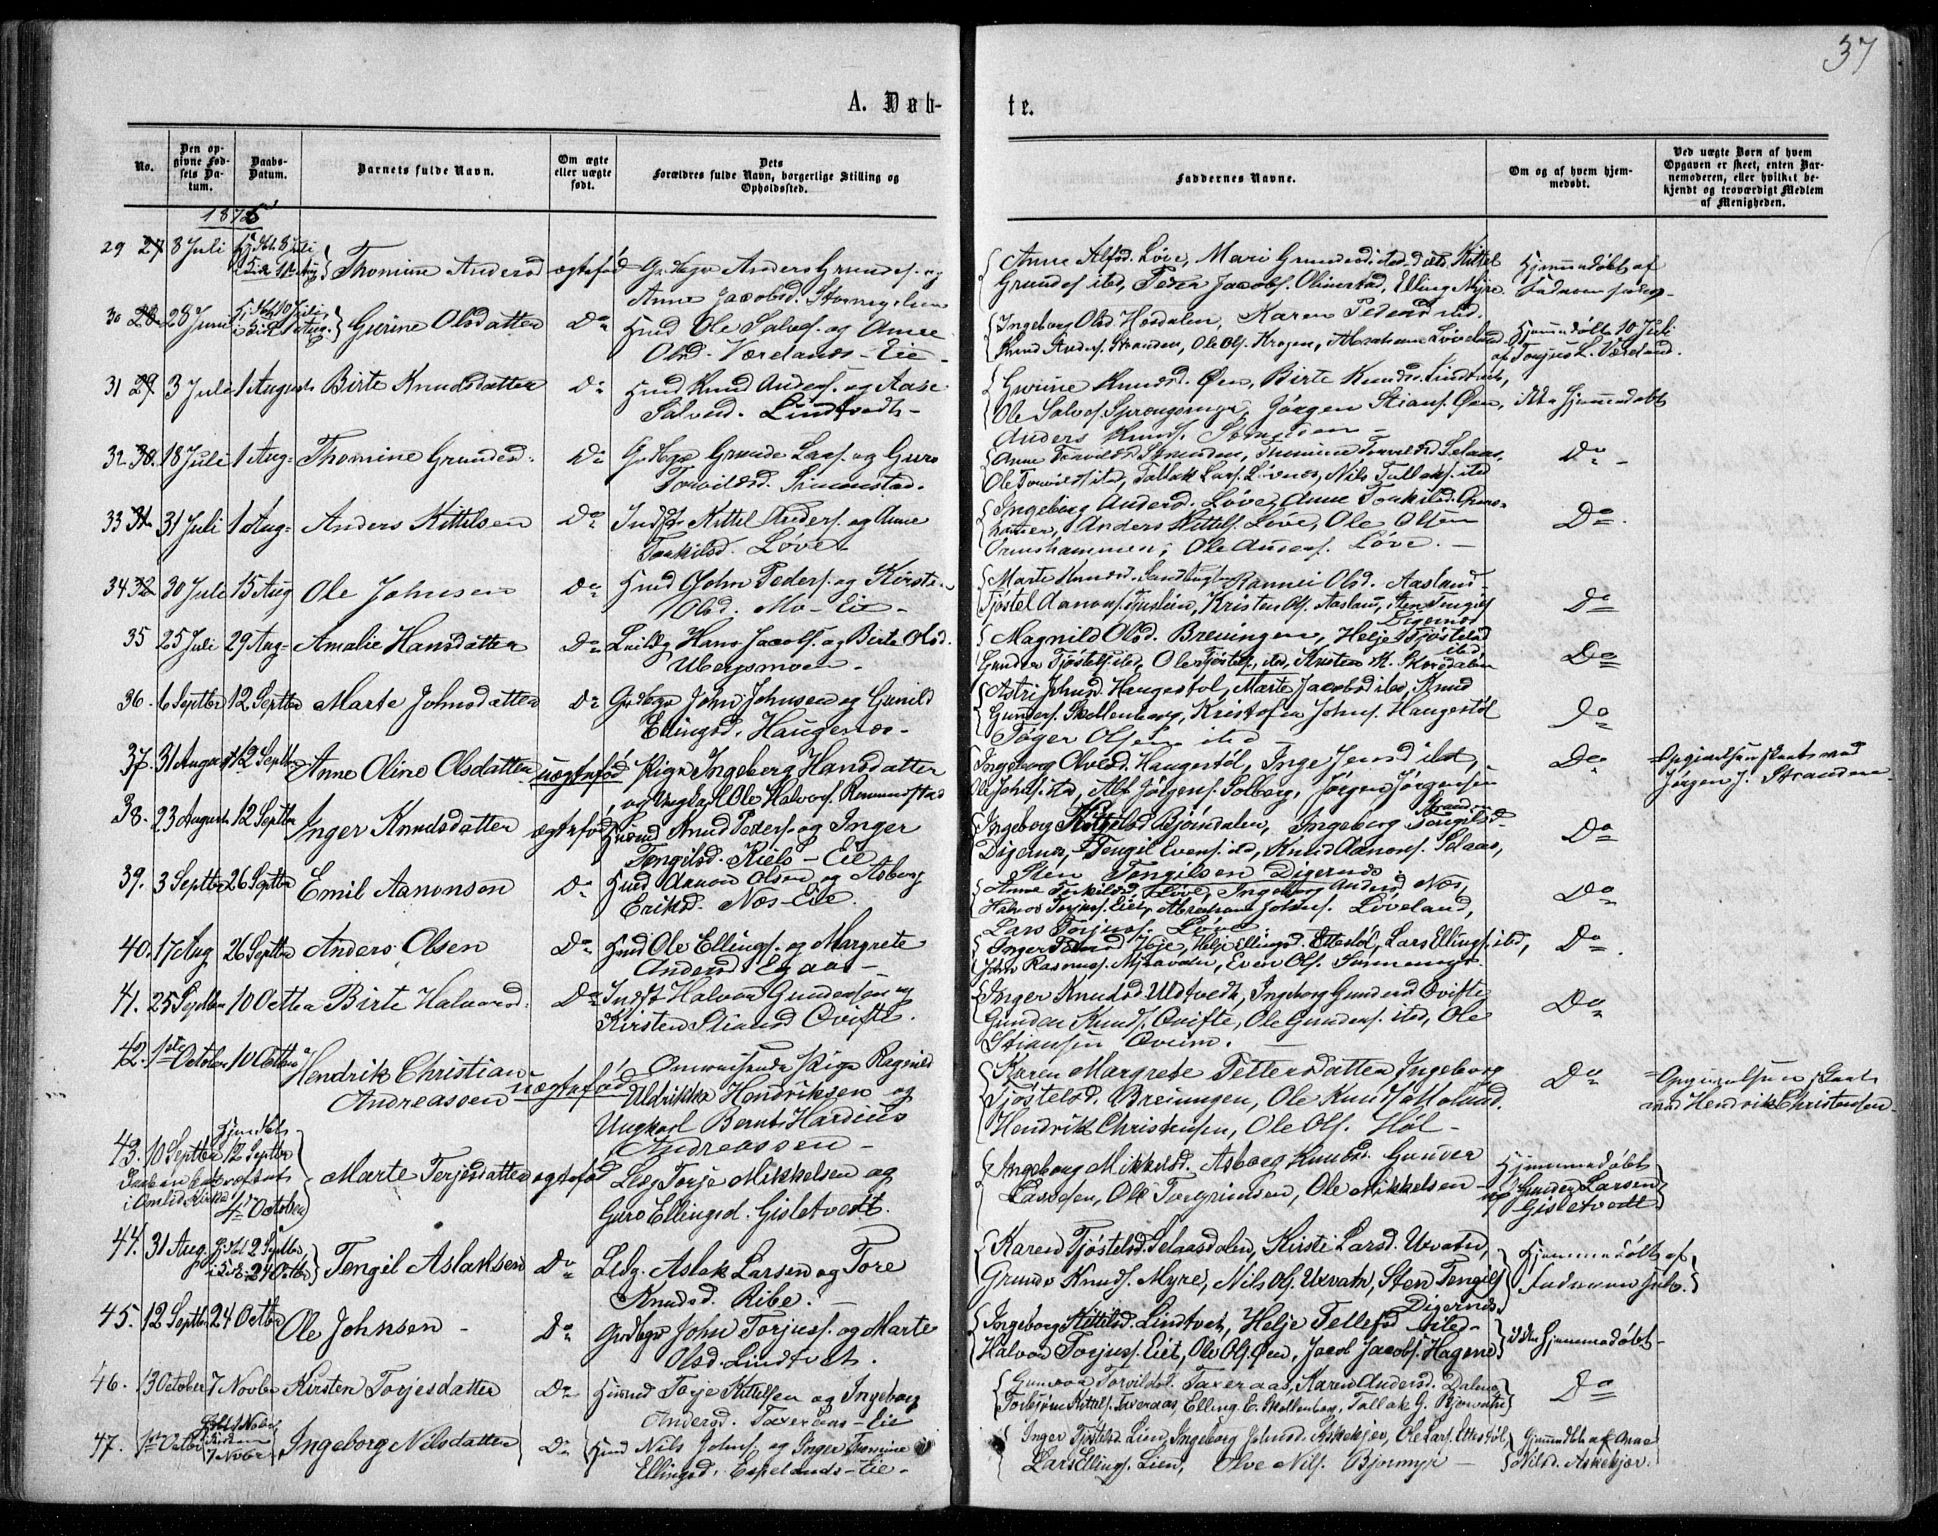 37
A. Døb-
te.
No.
Den op-
givne Fød-
sels Da-
tum.
Daabs-
Datum.
Barnets fulde Navn.
Om ægte
eller uægte
født.
Dets
Forældres fulde Navn, borgerlige Stilling og
Opholdssted.
Faddernes Navne.
Om og af hvem hjem-
medøbt.
Ved uægte Børn af hvem
Opgaven er skeet, enten Bar-
nemoderen, eller hvilket be-
kjendt og troværdigt Medlem
af Menigheden.
1875
29 27 8 Juli Thomine Andersd ægtefød Anders Grundes. og
Anne Jacobsd.
Anne Alfsd. Løve, Mari Grundesd ited Kittel
Grundes ited, Peder Jacobs. Olimstad, Elling Myre.
Hjemmedøbt af
Faderen
30 28 28 Juni Gurine Olsdatter Do Husmd Ole Salves. og Anne
Olsd. Værelands-Eie
Ingeborg Olsd Hosdalen, Karen Pedersd ited.
Knud Anders. Stranden, Ole Ols. Krogen, Abraham Løveland
Hjemmedøbt 10 Juli
af Torjus L. Væreland.
31 29 3 Juli 1 August Birte Knudsdatter Do Husmd Knud Anders. og Aase
Salvesd. Lindtvedt
Gurine Knudsd. Øen, Birte Knudsd. Lindtvet,
Ole Salves. Jørgen Stians. Øen,
Anders Knuds.
ikke Hjemmedøbt
32 30 18 Juli 1 Aug Thomine Grundesd. Do Grunde Lars. og Guro
Torvildsd. Simonstad.
Anne Torvildsd Stranden, Thomine Torvildsd Selaas,
Ole Torvilds ited, Tallak Lars. Løvnes, Nils Tallaks. ited
Do
33 31 31 Juli 1 Aug Anders Kittelsen Do Inds Kittel Anders. og Anne
Torkilsd. Løve
Ingeborg Andersd. Løve, Anne Torkilsd.
Anders Kittels. Løve, Ole Olsen
Ormshammen, Ole Anders. Løve.
Do
34 32 30 Juli 15 Aug Ole Johnsen Do Husmd John Peders. og Kirste
Olsd. Mo-Eie
Marte Knudsd. Rannei Olsd. Aasland
Tjøstel Aanons. Kristen Ols. Aaslan, Sten Tengils
Digernes
Do
35 25 Juli 29 Aug Amalie Hansdatter Do Hans Jacobs. og Birte Olsd.
Ubergsmoen
Magnild Olsd. Breiungen, Helje Tjøstelsd
ited,
Gunder Tjøstels. ited, Ole Tjøstels. ited, Kristen K. Hosdalen
Do
36. 6 Septbr 12 Septbr Marte Johnsdatter Do Gdbgr John Johnsen og Gunild
Ellingsd. Haugenes
Astri Johnsd. Haugestøl, Marte Jacobsd ited, Knud
Gunders. Skollenborg, Kristofer Johns. Haugestøl
Tøger Olsen ited
Do
37. 31 August 12 Septbr Anne Oline Olsdatter uægtefød Pige Ingeborg Hansdatter
og Ungkarl Ole Halvors. Romundstad
Ingeborg Olvesd. Haugestøl, Inge Jensd ited,
Ole Johns. ited, Alf Jørgens. Solberg, Jørgen Jørgensen
Stranden
Do
Opgivelsen skeet ved
Jørgen J. Stranden
38. 23 August 12 Septbr Inger Knudsdatter ægtefød Husmd Knud Peders. og Inger
Tengilsd. Kiels-Eie
Ingeborg Kittelsd Bjørndalen, Ingeborg Tengilsd.
Digernes, Tengil Evens. ited, Knud Aanons. Selaas,
Sten Tengilsen Digernes.
Do
39. 3 Septbr 26 Septbr Emil Aanonsen Do Husmd Aanon Olsen og Asborg
Eriksd. Næs-Eie.
Anne Torkilsd. Løve, Ingeborg Andersd Nes,
Halvor Torjus. Eiet, Abraham Johns. Løveland,
Lars Torjus. Løve
Do
40. 17 Aug 26 Septbr Anders Olsen Do Husmd Ole Ellings. og Margrete
Andersd Egaas
Helje Ellingsd. Ettestøl, Lars Ellings. ited,
John Rasmus. Even Ols.
Do
41. 25 Septbr 10 Octbr Birte Halvorsd. Do Inds Halvor Gundersen og
Kirsten Stiansd Ovifte.
Inger Knudsd. Uldtvedt, Ingeborg Gundersd Ovifte
Gunder Knuds. Ovifte, Ole Gunders. ited, Ole
Stiansen
Do
42. 1ste October 10 Octbr Hendrik Christian
Andreassen uægtefød Pige Ragnild
Uldrikke Hendriksen og
Ungkarl Bernt Hardius
Andreassen
Karen Margrete Pettersdatter Ingeborg
Tjøstelsd. Breiungen, Ole Knuds Molund.
Hendrik Christensen, Ole Ols. Høl
Do
Opgivelsen skeet
ved Hendrik Christensen
43. 10 Septbr Hjemdbt 12 Septbr
i Omlid Kirke
October Marte Torjesdatter ægtefød Torje Mikkelsen og
Guro Ellingsd. Gisletvedt.
Ingeborg Mikkelsd. Asborg Knudsd. Gunver
Larsen, Ole Torgrimsen, Ole Mikkelsen
Hjemmedøbt
af Gunder Larsen
Gisletvedt
44. 31 Aug. 2 Septbr
24 Octbr Tengil Aslaksen Do Aslak Larsen og Tore
Knudsd. Ribe.
Karen Tjøstelsd. Selaasdalen, Kirsti Larsd. Uvatn,
Grunde Knuds. Myre, Nils Ols. Uxvatn, Sten Tengils
Digernes.
Hjemmedøbt af
Faderen selv.
45. 12 Septbr 24 Octbr Ole Johnsen Do Gdbgr John Torjus. og Marte
Olsd. Lindtvet.
Ingeborg Kittelsd. Lindtvet, Helje Tellefsd ited
Halvor Torjus. Eiet, Ole Ols. Øen, Jacob Jacobs. Hagene
Ikke Hjemmedøbt
46. 13 October 7 Novbr Kirsten Torjesdatter Do Husmd Torje Kittelsen og Ingeborg
Andersd. Taxeraas-Eie
Gunvor Torvildsd. Taxeraas, Karen Andersd. Dalene
Torbjørn Kittels. Taxeraas, Elling E. Skollenborg, Tallak G.
Do
47. 1ste Octbr 7 Novbr Ingeborg Nilsdatter Do Husmd Nils Johns. og Inger Thomine
Ellingsd. Espelands-Eie
Inger Tjøstelsd. Lien, Ingeborg Johnsd. Askekjær, Ole Lars. Ettestøl,
Lars Ellings. Lien, Olve Nils. Bjormyr
Hjemmedbt af Anne
Nilsd. Askekjær.